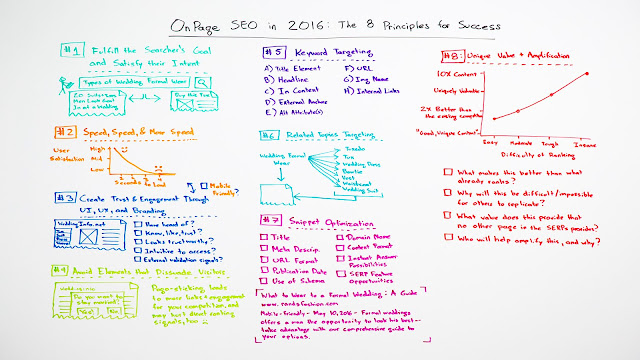 OnPage SEO in 2016: The 8 Principles for Success
#1 Fulfill the Searcher's Goal
and Satisfy their Intent
Types of Wedding Formal Wear
20 Suits
Men Look Good
In at a Wedding
Buy this Tux!
#2 Speed, Speed, & More Speed
User
Satisfaction
High
Mid
Low
1 2 3 4
Seconds to Load
Mobile
Friendly?
#3 Create Trust & Engagement Through
UI, UX, and Branding
WeddingInfo.net
Have heard of?
Know, like, trust?
Looks trustworthy?
Intuitive to access?
External validation signals?
#4 Avoid Elements that Dissuade Visitors
Do you want to
stay married?
Yes! No
Page-sticking, leads
to more links + engagement
for your competition, and
may hurt direct ranking
signals, too
#5 Keyword Targeting
A) Title Element
B) Headline
C) In Content
D) External Anchor
E) Alt Attribute(s)
F) URL
G) Img Name
H) Internal Links
#6 Related Topics Targeting
Wedding Formal
Wear
Tuxedo
Tux
Wedding Dress
Bowtie
Vest
Waistcoat
Wedding Suit
#7 Snippet Optimization
Title
Meta Descrip.
URL Format
Publication Date
Use of Schema
Domain Name
Content Format
Instant Answer
Possibilities
SERP Feature
Opportunities
What to Wear to a Formal Wedding: A Guide
www.randsfashion.com
Mobile-friendly - May 10, 2016 - Formal weddings
offers a man the opportunity to look his best--
take advantage with our comprehensive guide to
your options.
#8: Unique Value + Amplification
10X Content
Uniquely Valuable
2X Better than
the existing competitor
"Good, Unique Content"
Easy Moderate Tough Insane
Difficulty of Ranking
What makes this better than what
already ranks?
Why will this be difficult/impossible
for others to replicate?
What value does this provide that
no other page in the SERPs provides?
Who will help amplify this, and why?